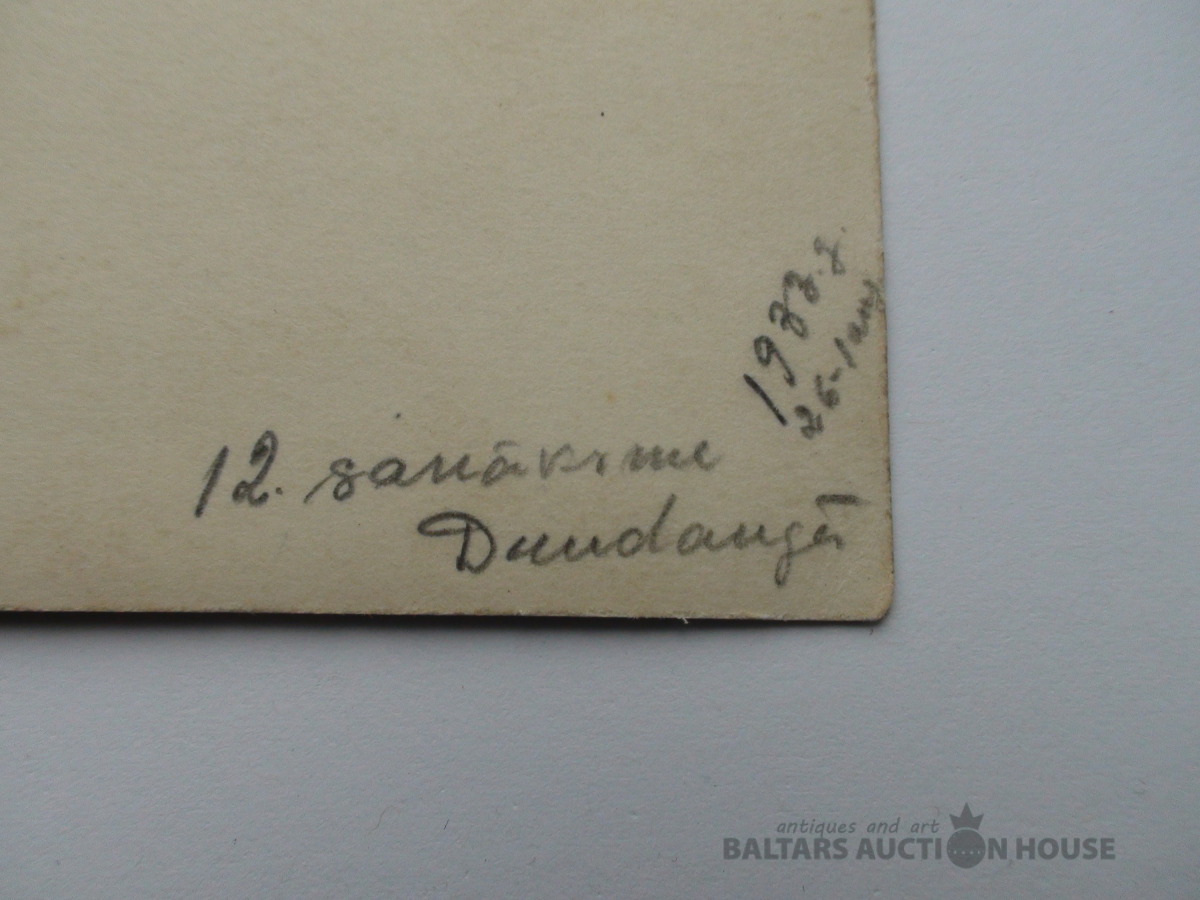 1933. g.
26-1 aug.
12. sanāksme
Dundangā
antiques and art
BALTARS AUCTION HOUSE